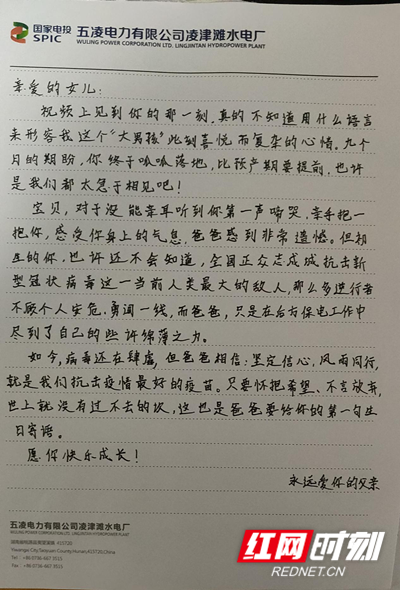 国家电投
SPIC
五凌电力有限公司凌津滩水电厂
WULING POWER CORPORATION LTD. LINGJINTAN HYDROPOWER PLANT
亲爱的女儿:
视频上见到你的那一刻,真的不知道用什么语言
来形容我这个“大男孩”此刻喜悦而复杂的心情。九个
月的期盼,你终于呱呱落地,比预产期要提前,也许
是我们都太急于相见吧!
宝贝,对于没能亲耳听到你第一声啼哭,亲手抱一
抱你,感受你身上的气息,爸爸感到非常遗憾。但初
生的你,也许还不会知道,全国正众志成城抗击新
型冠状病毒这一当前人类最大的敌人,那么多逆行者
不顾个人安危,勇闯一线,而爸爸,只是在后方保电工作中
尽到了自己的些许绵薄之力。
如今,病毒还在肆虐,但爸爸相信:坚定信心,风雨同行,
就是我们抗击疫情最好的疫苗。只要怀抱希望、不言放弃,
世上就没有过不去的坎,这也是爸爸要给你的第一句生
日寄语。
愿你快乐成长!
永远爱你的父亲
五凌电力有限公司凌津滩水电厂
Yiwangxi City/Taoyuan County/Hunan/415720,China
红网时刻
REDNET.CN